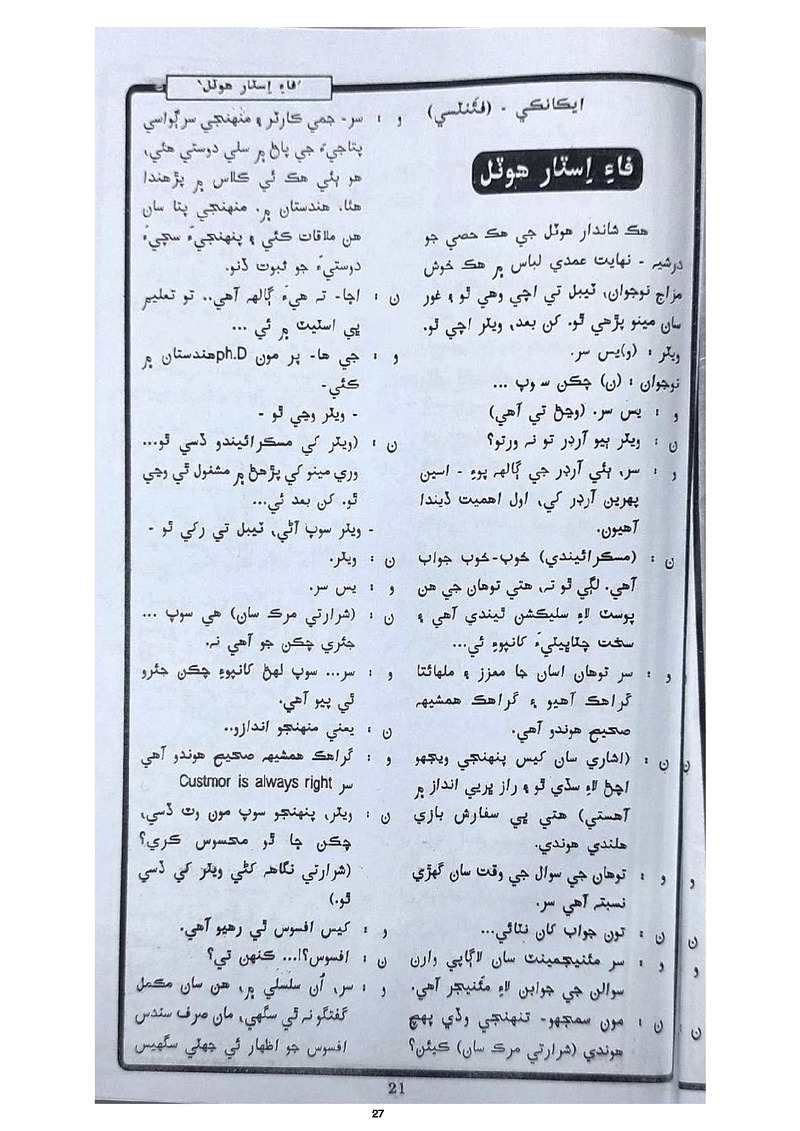 'فاءِ اِسٽار هوٽل'
ايڪانڪي - (فئنٽسي)
فاءِ اِسٽار هوٽل
هڪ شاندار هوٽل جي هڪ حصي جو
درشيہ - نهايت عمدي لباس ۾ هڪ خوش
مزاج نوجوان، ٽيبل تي اچي وهي ٿو ۽ غور
سان مينو پڙهي ٿو. کن بعد، ويٽر اچي ٿو.
ويٽر : (و)يس سر.
نوجوان : (ن) چڪن سوپ ...
و : يس سر. (وڃڻ تي آهي)
ن : ويٽر ٻيو آرڊر تو نہ ورتو؟
و : سر، ٻئي آرڊر جي ڳالهہ پوءِ - اسين
پهرين آرڊر کي، اول اهميت ڏيندا
آهيون.
ن : (مسڪرائيندي) خوب-خوب جواب
آهي. لڳي ٿو تہ، هتي توهان جي هن
پوسٽ لاءِ سليڪشن ٿيندي آهي ۽
سخت چٽاڀيٽيءَ کانپوءِ ئي...
و : سر توهان اسان جا معزز ۽ ملهائتا
گراهڪ آهيو ۽ گراهڪ هميشہ
صحيح هوندو آهي.
ن : (اشاري سان کيس پنهنجي ويجهو
اچڻ لاءِ سڏي ٿو ۽ راز ڀريي انداز ۾
آهستي) هتي پي سفارش بازي
هلندي هوندي.
و : توهان جي سوال جي وقت سان گهڙي
نسبتہ آهي سر.
ن : تون جواب کان نٽائي...
و : سر مئنيجمينٽ سان لاڳاپي وارن
سوالن جي جوابن لاءِ مئنيجر آهي.
ن : مون سمجهو- تنهنجي وڏي پهچ
هوندي (شرارتي مرڪ سان) ڪيئن؟
و : سر- جمي ڪارٽر ۽ منهنجي سرڳواسي
پتاجيءَ جي پاڻ ۾ سٺي دوستي هئي،
هو ٻئي هڪ ئي ڪلاس ۾ پڙهندا
هئا، هندستان ۾. منهنجي پتا سان
هن ملاقات ڪئي ۽ پنهنجيءَ سچيءَ
دوستيءَ جو ثبوت ڏنو.
ن : اڇا- تہ هيءَ ڳالهہ آهي.. تو تعليم
پي اسٽيٽ ۾ ئي ...
و : جي ها- پر مون ph.D هندستان ۾
ڪئي-
- ويٽر وڃي ٿو -
ن : (ويٽر کي مسڪرائيندو ڏسي ٿو...
وري مينو کي پڙهڻ ۾ مشغول ٿي وڃي
ٿو. کن بعد ئي...
- ويٽر سوپ آڻي، ٽيبل تي رکي ٿو -
ن : ويٽر.
و : يس سر.
ن : (شرارتي مرڪ سان) هي سوپ ...
جئري چڪن جو آهي نہ.
و : سر... سوپ لهڻ کانپوءِ چڪن جئرو
ٿي پيو آهي.
ن : يعني منهنجو اندازو..
و : گراهڪ هميشہ صحيح هوندو آهي
سر Custmor is always right
ن : ويٽر، پنهنجو سوپ مون وٽ ڏسي،
چڪن ڇا ٿو محسوس ڪري؟
(شرارتي نگاهہ کڻي ويٽر کي ڏسي
ٿو.)
و : کيس افسوس ٿي رهيو آهي.
ن : افسوس؟!... ڪنهن تي؟
و : سر، اُن سلسلي ۾، هن سان مڪمل
گفتگو نہ ٿي سگهي، مان صرف سندس
افسوس جو اظهار ئي جهٽي سگهيس
21
27